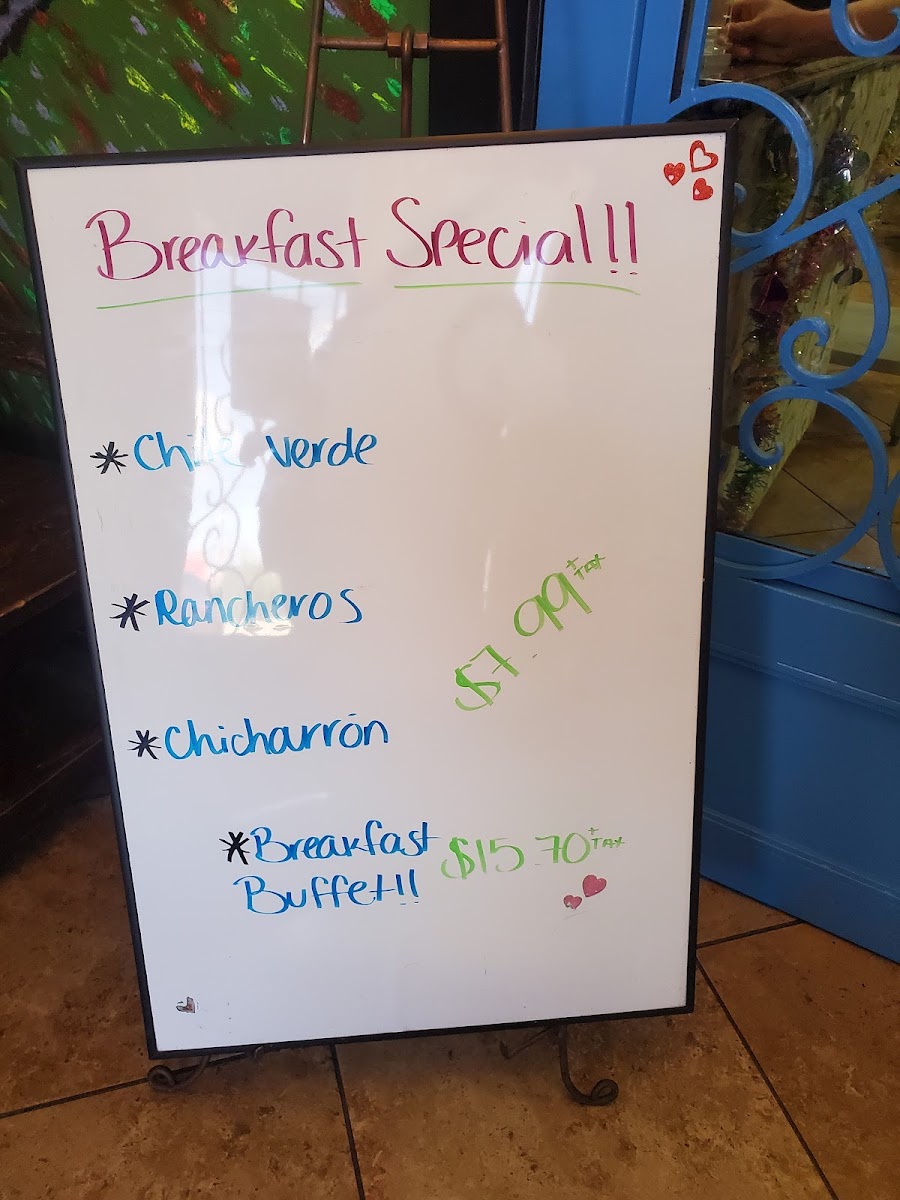 Breakfast Special!!
*Chile Verde
*Rancheros
$7.99 + TAX
*Chicharrón
*Breakfast $15.70 + TAX
Buffet!!